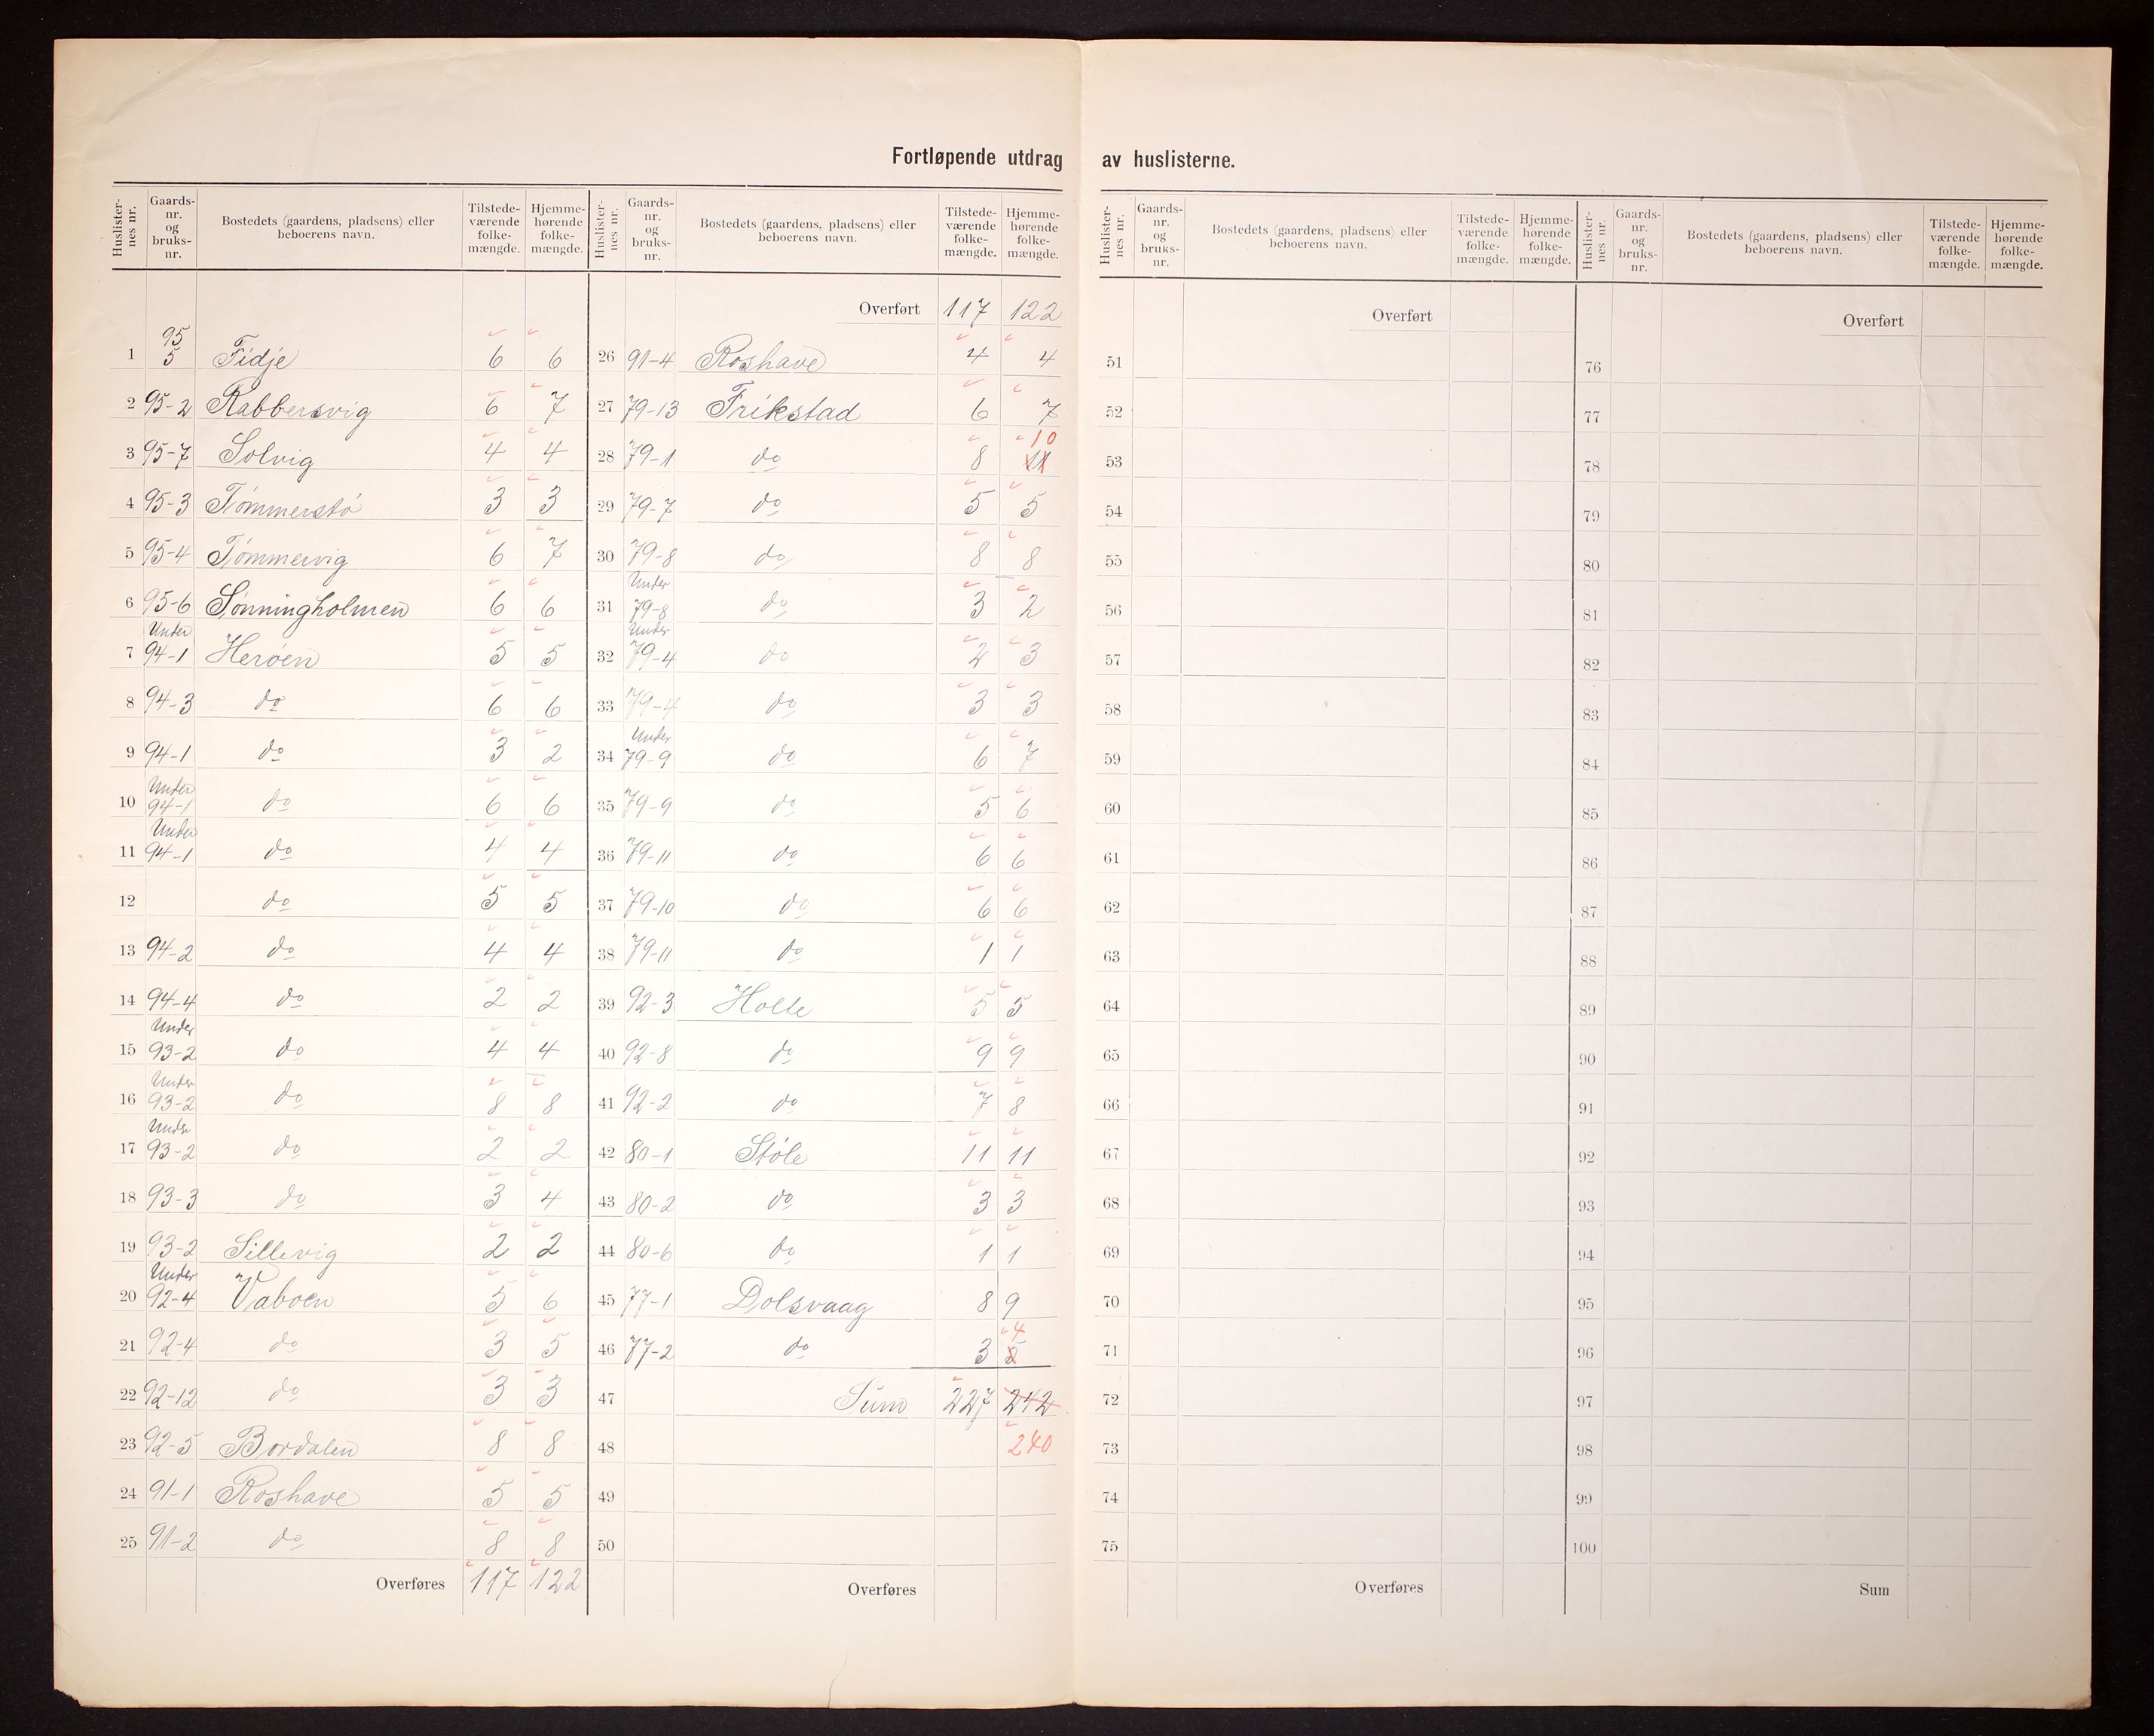 Fortløpende utdrag av huslisterne.
Huslisternes nr. Gaards-nr. og bruks-nr. Bostedets (gaardens, pladsens) eller beboerens navn. Tilstede-værende folke-mængde. Hjemme-hørende folke-mængde.
1 95 5 Fidje 6 6
2 95-2 Rabbersvig 6 7
3 95-7 Solvig 4 4
4 95-3 Tømmerstø 3 3
5 95-4 Tømmervig 6 7
6 95-6 Sønningholmen 6 6
7 Under 94-1 Herøen 5 5
8 94-3 do 6 6
9 94-1 do 3 2
10 Under 94-1 do 6 6
11 Under 94-1 do 4 4
12 do 5 5
13 94-2 do 4 4
14 94-4 do 2 2
15 Under 93-2 do 4 4
16 Under 93-2 do 8 8
17 Under 93-2 do 2 2
18 93-3 do 3 4
19 93-2 Sillevig 2 2
20 Under 92-4 Vaboen 5 6
21 92-4 do 3 5
22 92-12 do 3 3
23 92-5 Bordalen 8 8
24 91-1 Roshave 5 5
25 91-2 do 8 8
Overføres 117 122
Huslisternes nr. Gaards-nr. og bruks-nr. Bostedets (gaardens, pladsens) eller beboerens navn. Tilstede-værende folke-mængde. Hjemme-hørende folke-mængde.
Overført 117 122
26 91-4 Roshave 4 4
27 79-13 Frikstad 6 7
28 79-1 do 8 11 10
29 79-7 do 5 5
30 79-8 do 8 8
31 Under 79-8 do 3 2
32 Under 79-4 do 2 3
33 79-4 do 3 3
34 Under 79-9 do 6 7
35 79-9 do 5 6
36 79-11 do 6 6
37 79-10 do 6 6
38 79-11 do 1 1
39 92-3 Holte 5 5
40 92-8 do 9 9
41 92-2 do 7 8
42 80-1 Støle 11 11
43 80-2 do 3 3
44 80-6 do 1 1
45 77-1 Dolsvaag 8 9
46 77-2 do 3 5 4
47 Sum 227 242
48 240
49
50
Overføres
Huslisternes nr. Gaards-nr. og bruks-nr. Bostedets (gaardens, pladsens) eller beboerens navn. Tilstede-værende folke-mængde. Hjemme-hørende folke-mængde.
Overført
51
52
53
54
55
56
57
58
59
60
61
62
63
64
65
66
67
68
69
70
71
72
73
74
75
Overføres
Huslisternes nr. Gaards-nr. og bruks-nr. Bostedets (gaardens, pladsens) eller beboerens navn. Tilstede-værende folke-mængde. Hjemme-hørende folke-mængde.
Overført
76
77
78
79
80
81
82
83
84
85
86
87
88
89
90
91
92
93
94
95
96
97
98
99
100
Sum